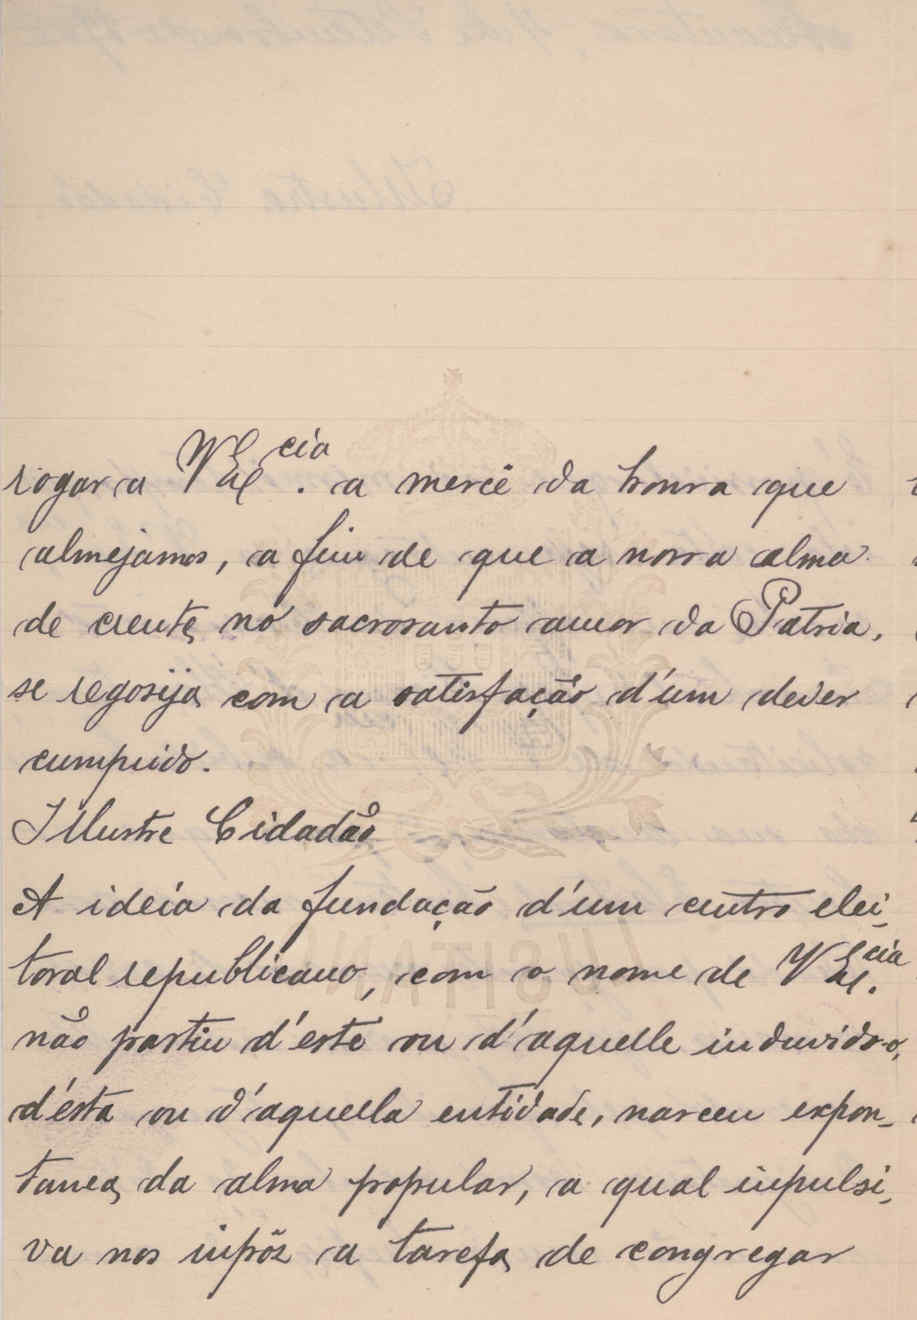 rogar a V Ex.cia a mercê da honra que
almejamos, a fim de que a nossa alma
de crente, no sacrosanto amor da Patria,
se regosija com a satisfação d'um dever
cumprido.
Illustre Cidadão
A ideia da fundação d'um centro elei-
toral republicano, com o nome de V Ex.cia
não partiu d'este ou d'aquelle induvido-o,
d'ésta ou d'aquella entidade, nasceu expon-
tanea, da alma popular, a qual inpulsi-
va nos inpôz a tarefa de congregar
LUSITANA